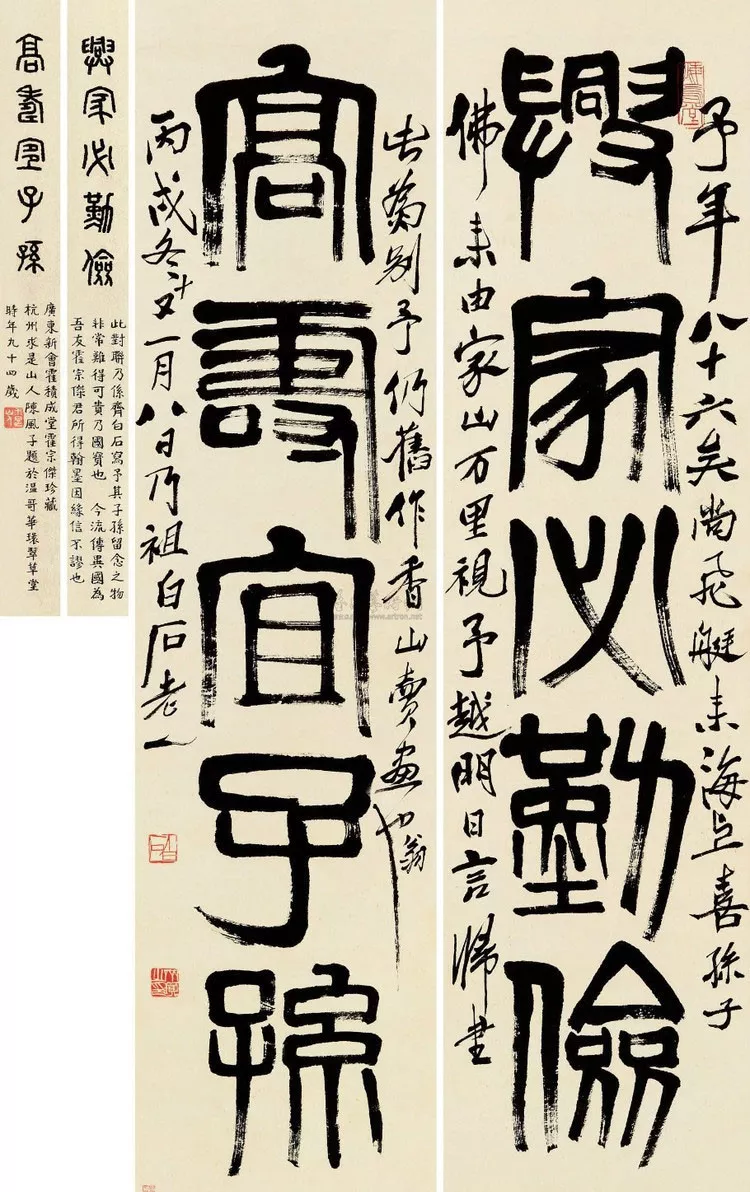 予年八十六矣尚飛艇来海上喜孫子
興家必勤儉
佛来由家山万里視予越明日言歸書
此為别予仍舊作香山賣畫翁也
高壽宜子孫
丙戌冬十又一月八日乃祖白石老人
興家必勤儉
此對聯乃係齊白石寫予其子孫留念之物
非常難得可貴乃國寶也 今流傳異國為
吾友霍宗傑君所得翰墨因緣信不謬也
高壽宜子孫
廣東新會霍積成堂霍宗傑珍藏
杭州求是山人陳風子題於温哥華環翠草堂
時年九十四歲
www.artron.net